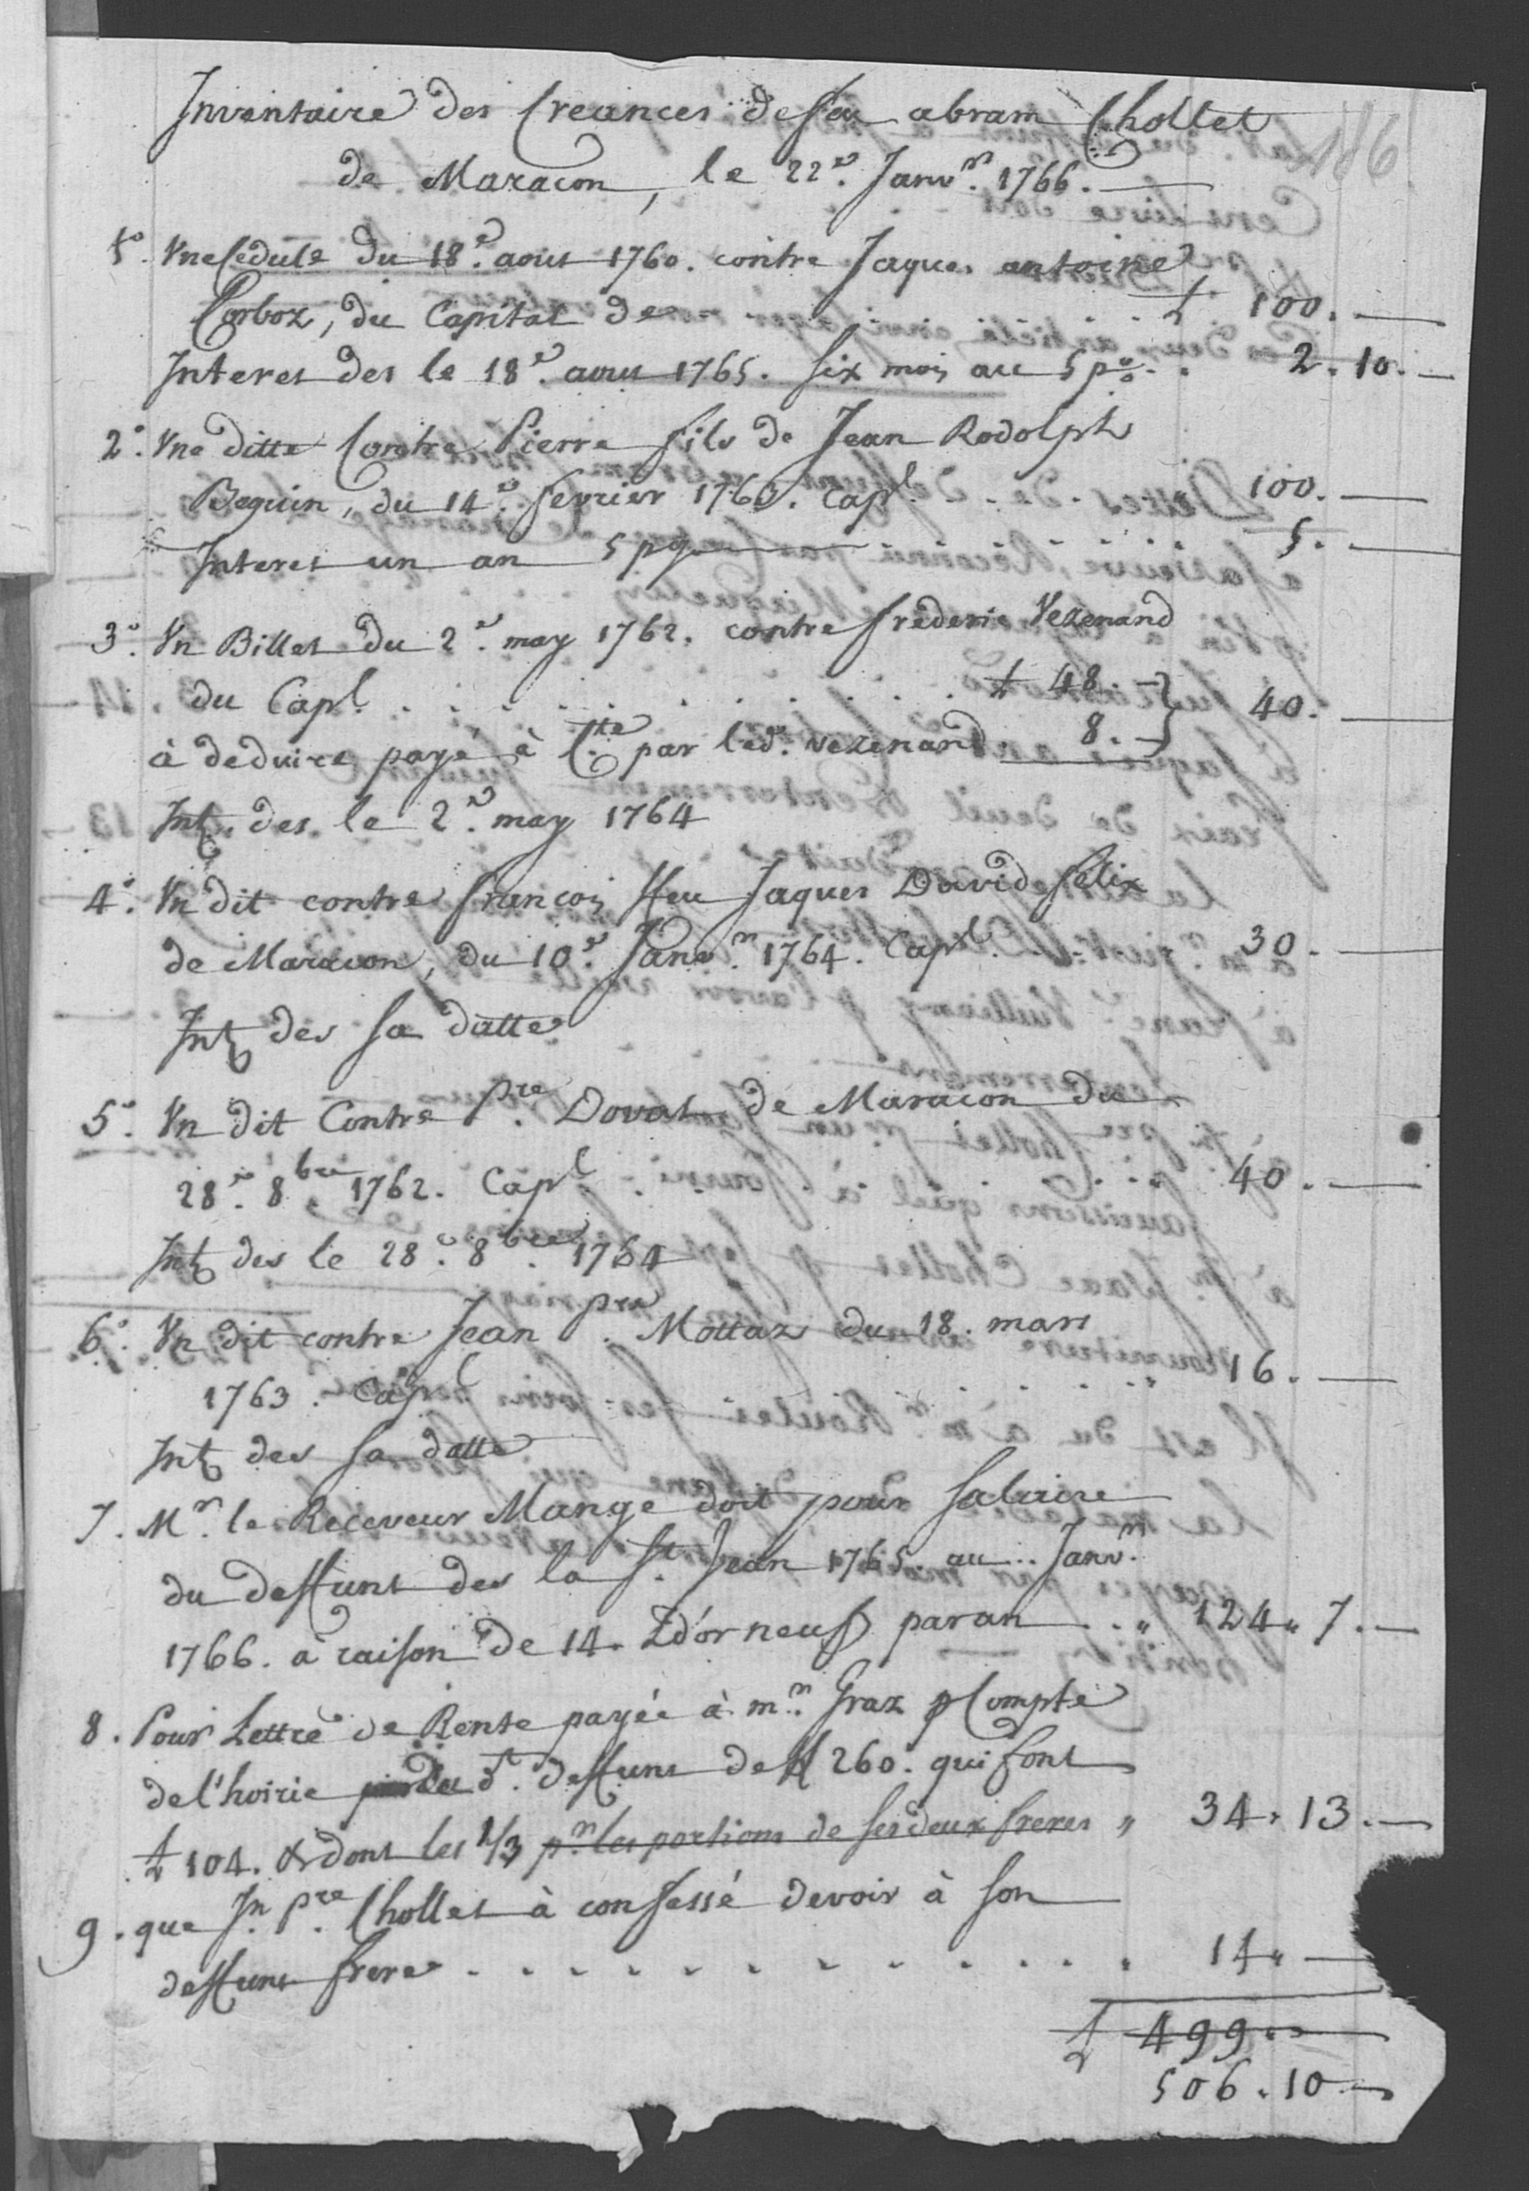 Inventaire des Creances de feu abram Chollet
de Maracon, le 22.e Janv.r 1766.
186
1.° Vne Cedule du 18.e aout 1760. contre Jaques antoine
Corboz, du Capital de . . . £ 100. —
Interet des le 18.e aout 1765. six mois au 5 p% . . 2. 10. —
2.° Vne ditte Contre Pierre fils de Jean Rodolph
Beguin, du 14.e fevrier 1763. Cap.l . . . 100. —
Interet un an 5 p% . . . 5. —
3.° Vn Billet du 2.e may 1762. contre frederic Vezenand
du Cap.l . . . £ 48. — } 40. —
à deduire payé à C.te par led.t vezenand 8. — }
Int. des le 2.e may 1764
4.° Vn dit contre francois ffeu Jaques David felix
de Maracon, du 10.e Janv.r 1764. Cap.l 30. —
Int. des sa datte
5.° Vn dit Contre P.re Dovat de Maracon du
28.e 8.bre 1762. Cap.l . . . 40. —
Int. des le 28.e 8.bre 1764
6.° Vn dit contre Jean P.re Mottaz du 18. mars
1763. Cap.l . . . 16. —
Int. des sa datte
7. M.r le Receveur Mange doit pour salaire
du deffunt des la S.t Jean 1765. au .. Janv.r
1766. à raison de 14. L d'or neufs par an . . " 124 " 7. —
8. Pour Lettre de Rente payée à m.r Graz p Compte
de l'hoirie du d.t deffunt de ff 260. qui font
£ 104. & dont les 1/3 p.r les portions de ses deux freres " 34. 13. —
9. que J.n P.re Chollet à confessé devoir à son
deffunt frere . . . 14 " —
£ 499. —
506. 10 —